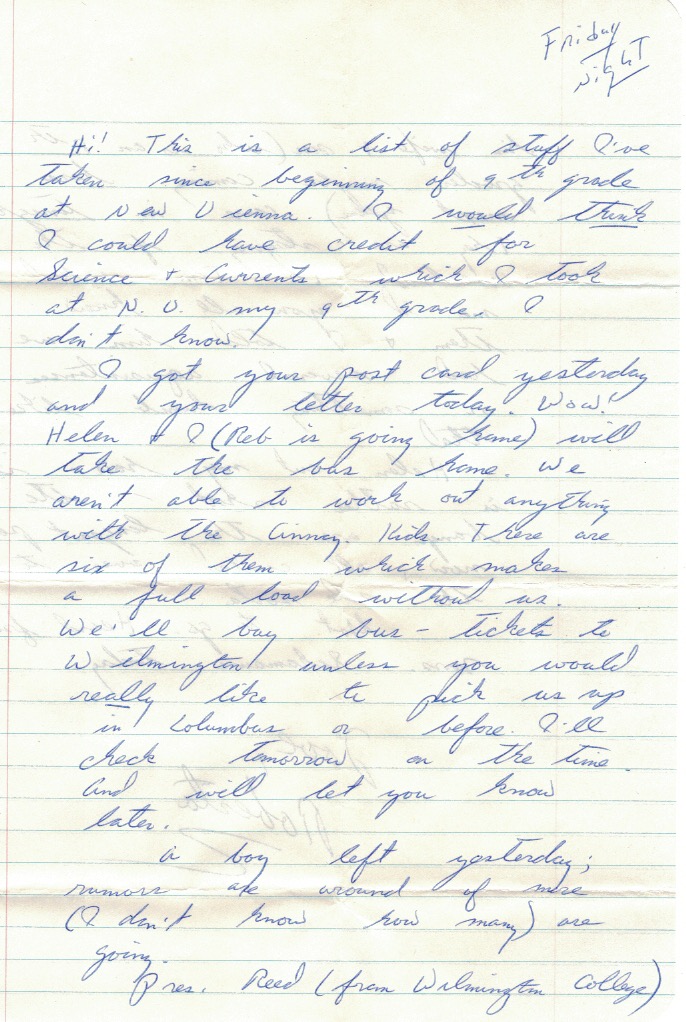 Friday
Night
Hi! This is a list of stuff I've
taken since beginning of 9th grade
at New Vienna. I would think
I could have credit for
Science + Currents which I took
at N. V. my 9th grade. I
don't know.
I got your post card yesterday
and your letter today. Wow!
Helen & I (Reb is going home) will
take the bus home. We
aren't able to work out anything
with the Cinncy. Kids. There are
six of them which makes
a full load without us.
We'll buy bus - tickets to
Wilmington unless you would
really like to pick us up
in Columbus or before. I'll
check tomorrow on the time.
And will let you know
later.
A boy left yesterday;
rumors are around of more
(I don't know how many) are
going.
Pres. Reed (from Wilmington College)